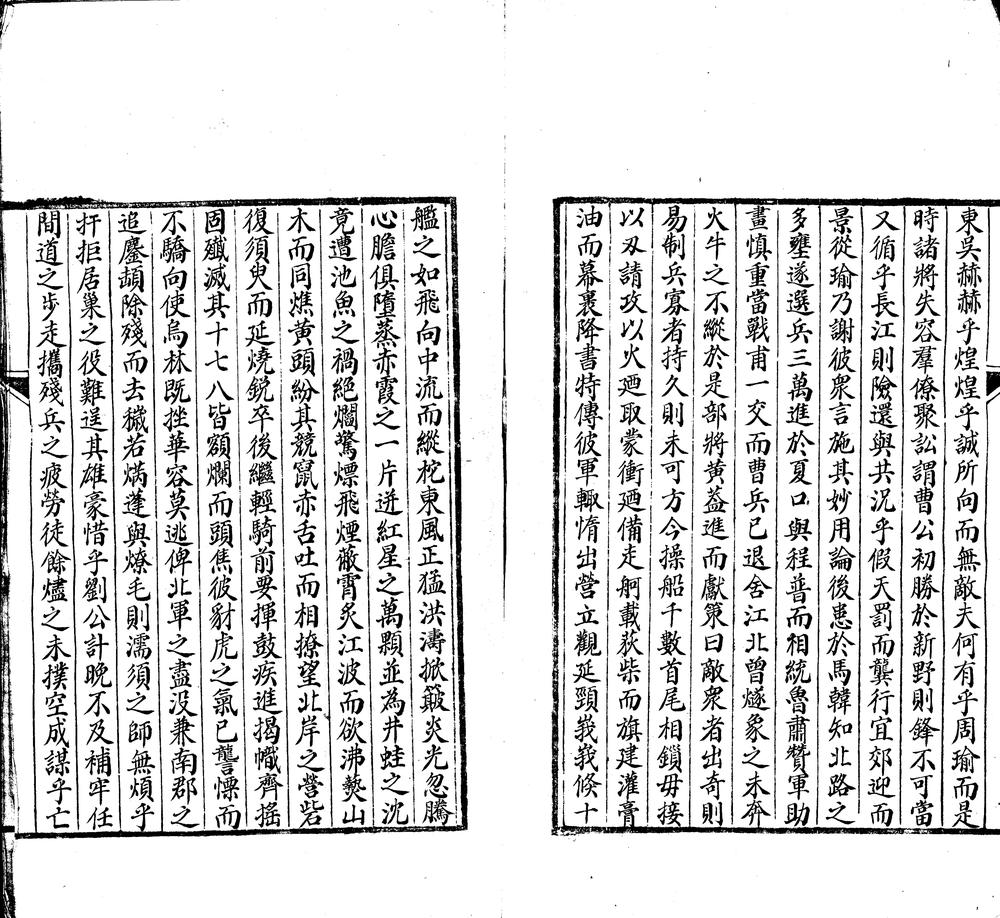 東吳赫赫乎煌煌乎誠所向而無敵夫何有乎周瑜而是
時諸將失容羣僚聚訟謂曹公初勝於新野則鋒不可當
又循乎長江則險還與共況乎假天罰而龔行宜郊迎而
景從瑜乃謝彼衆言施其妙用論後患於馬韓知北路之
多壅遂選兵三萬進於夏口與程普而相統魯肅贊軍助
畫慎重當戰甫一交而曹兵已退舍江北曾燧象之未奔
火牛之不縱於是部將黃葢進而獻策曰敵衆者出奇則
易制兵寡者持久則未可方今操船千數首尾相鎖毋接
以刄請攻以火廼取蒙衝廼備走舸載荻柴而旗建灌膏
油而幕裏降書特傳彼軍輙惰出營立觀延頸峩峩倏十
艦之如飛向中流而縱柁東風正猛洪濤掀簸炎光忽騰
心膽俱墮蒸赤霞之一片迸紅星之萬顆並為井蛙之沈
竟遭池魚之禍絕爛驚熛飛煙蔽霄炙江波而欲沸爇山
木而同燋黃頭紛其競竄赤舌吐而相撩望北岸之營砦
復須臾而延燒銳卒後繼輕騎前要揮鼓疾進揭幟齊搖
固殲滅其十七八皆額爛而頭焦彼豺虎之氣已讋慄而
不驕向使烏林既挫華容莫逃俾北軍之盡没兼南郡之
追鏖頡除殘而去穢若爇蓬與燎毛則濡須之師無煩乎
扞拒居巢之役難逞其雄豪惜乎劉公計晚不及補牢任
間道之步走攜殘兵之疲勞徒餘燼之未撲空成謀乎亡